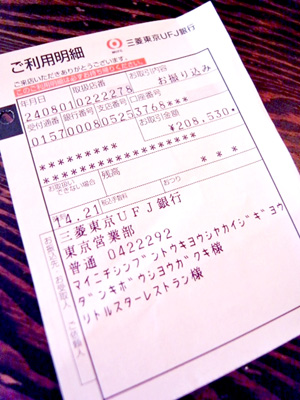 ご利用明細
三菱東京UFJ銀行
ご来店いただきありがとうございます。
年月日 取扱店番 お取引内容
240801 0222278 お振り込み
受付通番 銀行番号 支店番号 口座番号
0157 0008 052 53768***
お取引金額
¥208,530*
*********
*********
お取扱いできない場合 残高
* * *
税込手数料 おつり
14.21
三菱東京UFJ銀行
東京営業部
普通 0422292
マイニチシンブントウキョウシャカイジギョウ
ダンキボウショウガクキ様
リトルスターレストラン様